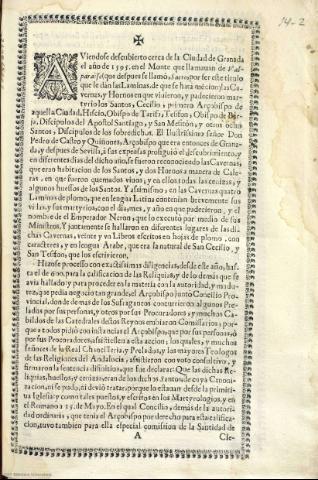 14-2
AViendose descubierto cerca de la Ciudad de Granada
el año de 1595. en el Monte que llamauan de Val-
paraiso, que despues se llamò, Sacro, por ser este titulo
que le dàn las Laminas, de que se harà mencion, las Ca-
uernas, y Hornos en que vinieron, y padecieron mar-
tyrio los Santos, Cecilio, primero Arçobispo de
aquella Ciudad, Hiscio, Obispo de Tarifa, Tesifon, Obispo de Ber-
ja, Discipulos del Apostol Santiago, y San Mesiton, y otros ochos
Santos, Discipulos de los sobredichos. El Ilustrissimo señor Don
Pedro de Castro y Quiñones, Arçobispo que era entonces de Grana-
da, y despues de Seuilla, à sus expensas prosiguiò el descubrimiento, y
en diferentes dias del dicho año, se fueron reconociendo las Cauernas,
que eran habitacion de los Santos, y dos Hornos à manera de Cale-
ras, en que fueron quemados viuos, y en ellos todas las cenizas, y
algunos huessos de los Santos. Y assimismo, en las Cauernas quatro
Laminas de plomo, que en lengua Latina contenian breuemente sus
vidas, y sus martyrios, con el dia, mes, y año en que padecieron, y el
nombre de el Emperador Neron, que lo executò por medio de sus
Ministros. Y juntamente se hallaron en diferentes lugares de las di-
chas Cauernas, veinte y vn Libros escritos en hojas de plomo, con
caracteres, y en lengua Arabe, que era la natural de San Cecilio, y
San Tesifon, que los escriuieron.
Hizose processo con exactissimas diligencias, desde este año, has-
ta el de 600. para la calificacion de las Reliquias, y de lo demàs que se
auia hallado, y para proceder en la materia con la autoridad, y madu-
rez, que pedia negocio tan grande, el Arçobispo juntò Concilio Pro-
vincial, donde demas de los Sufraganeos concurrieron algunos Pre-
lados por sus personas, y otros por sus Procuradores, y muchos Ca-
bildos de las Catedrales destos Reynos embiaron Comissarios, por-
que à todos pidiò, con instancia el Arçobispo, que por sus personas, ò
por sus Procuradores, assistiessen à esta accion; los quales, y muchos
señores de la Real Chancilleria, y Prelados, y los mayores Teologos
de las Religiones del Andaluzia, assistieron con voto consultiuo, y
firmaron la sentencia difinitiua, que fue declarar: Que las dichas Re-
liquias, huessos, y cenizas, eran de los dichos Santos, de cuya Canoni-
zacion, ni se pudo, ni deuiò tratar, porque lo estauan desde la primiti-
ua Iglesia, y como tales puestos, y escritos en los Martyrologios, y en
el Romano à 15. de Mayo. En el qual Concilio, demàs de la autori-
dad ordinaria, que tenia el Arçobispo por derecho para esta califica-
cion, tuvo tambien para ella especial comission de la Santidad de
A
Cle-